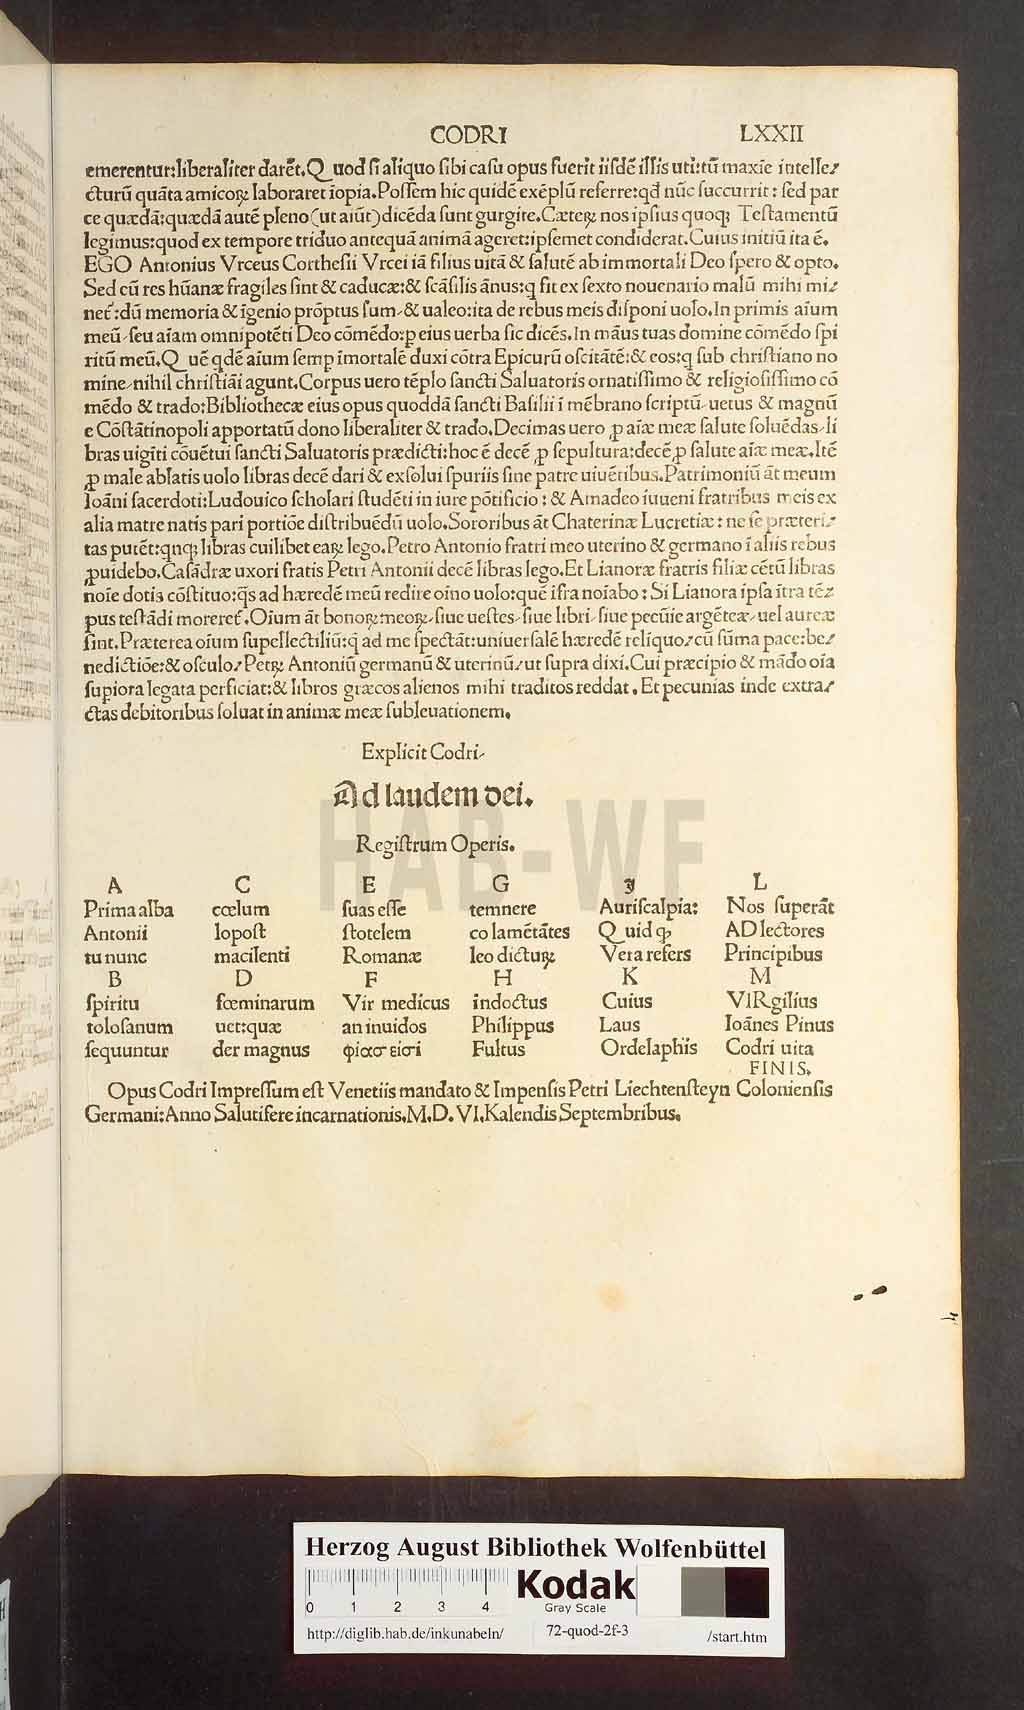 CODRI LXXII
emerentur:liberaliter darẽt.Quod ſi aliquo ſibi caſu opus fuerit iiſdẽ illis uti:tũ maxĩe intelle/
cturũ quãta amicoꝝ laboraret ĩopia.Poſſem hic quidẽ exẽplũ referre:qđ nũc ſuccurrit: ſed par
ce quædã:quædã autẽ pleno(ut aiũt)dicẽda ſunt gurgite.Cæteꝝ nos ipſius quoqꝫ Teſtamentũ
legimus:quod ex tempore triduo antequã animã ageret:ipſemet condiderat.Cuius initiũ ita ẽ.
EGO Antonius Vrceus Cortheſii Vrcei iã filius uitã & ſalutẽ ab immortali Deo ſpero & opto.
Sed cũ res hũanæ fragiles ſint & caducæ:& ſcãſilis ãnus:q ſit ex ſexto nouenario malũ mihi mi/
net̃:dũ memoria & ĩgenio prõptus ſum/& ualeo:ita de rebus meis diſponi uolo.In primis aium
meũ/ſeu aĩam omnipotẽti Deo cõmẽdo:ꝑ eius uerba ſic dicẽs.In mãus tuas domine cõmẽdo ſpi
ritũ meũ.Quẽ qdẽ aĩum ſemꝑ ĩmortalẽ duxi cõtra Epicurũ oſcitãtẽ:& eos:q ſub chriſtiano no
mine/nihil chriſtiãi agunt.Corpus uero tẽplo ſancti Saluatoris ornatiſſimo & religioſiſſimo cõ
mẽdo & trado:Bibliothecæ eius opus quoddã ſancti Baſilii ĩ mẽbrano ſcriptũ/uetus & magnũ
e Cõſtãtinopoli apportatũ dono liberaliter & trado.Decimas uero ꝓ aĩæ meæ ſalute ſoluẽdas/li
bras uigĩti cõuẽtui ſancti Saluatoris prædicti:hoc ẽ decẽ ꝓ ſepultura:decẽ ꝓ ſalute aĩæ meæ.Itẽ
ꝓ male ablatis uolo libras decẽ dari & exſolui ſpuriis ſine patre uiuẽtibus.Patrimoniũ ãt meum
Ioãni ſacerdoti:Ludouico ſcholari ſtudẽti in iure põtificio: & Amadeo iuueni fratribus meis ex
alia matre natis pari portiõe diſtribuẽdũ uolo.Sororibus ãt Chaterinæ Lucretiæ: ne ſe præteri/
tas putẽt:qnqꝫ libras cuilibet eaꝝ lego.Petro Antonio fratri meo uterino & germano ĩ aliis rebus
ꝓuidebo.Caſãdræ uxori fratis Petri Antonii decẽ libras lego.Et Lianoræ fratris filiæ cẽtũ libras
noĩe dotis cõſtituo:q̃s ad hæredẽ meũ redire oĩno uolo:quẽ ĩfra noĩabo: Si Lianora ĩpſa ĩtra tẽ/
pus teſtãdi moreret̃.Oĩum ãt bonoꝝ:meoꝝ/ſiue ueſtes/ſiue libri/ſiue pecũiæ argẽteæ/uel aureæ
ſint.Præterea oĩum ſupellectiliũ:q ad me ſpectãt:uniuerſalẽ hæredẽ relĩquo/cũ ſũma pace:be/
nedictiõe:& oſculo/Petꝝ Antoniũ germanũ & uterinũ/ut ſupra dixi.Cui præcipio & mãdo oĩa
ſupiora legata perficiat:& libros græcos alienos mihi traditos reddat.Et pecunias inde extra/
ctas debitoribus ſoluat in animæ meæ ſubleuationem.
Explicit Codri/
Ad laudem dei.
Regiſtrum Operis.
A C E G I L
Prima alba cœlum ſuas eſſe temnere Auriſcalpia: Nos ſuperãt
Antonii lopoſt ſtotelem co lamẽtãtes Quid qꝫ ADlectores
tu nunc macilenti Romanæ leo dictuꝝ Vera refers Principibus
B D F H K M
ſpiritu fœminarum Vir medicus indoctus Cuius VIRgilius
toloſanum uet:quæ an inuidos Philippus Laus Ioãnes Pinus
ſequuntur der magnus φιασ εισι Fultus Ordelaphis Codri uita
FINIS.
Opus Codri Impreſſum eſt Venetiis mandato & Impenſis Petri Liechtenſteyn Colonienſis
Germani:Anno Salutifere incarnationis.M.D.VI.Kalendis Septembribus.
HAB-WF
Herzog August Bibliothek Wolfenbüttel
0 1 2 3 4
Kodak
Gray Scale
http://diglib.hab.de/inkunabeln/ 72-quod-2f-3 /start.htm